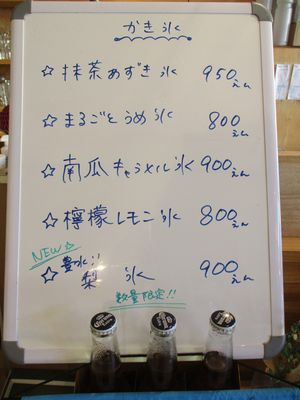 かき氷
☆ 抹茶あずき氷 950えん
☆ まるごとうめ氷 800えん
☆ 南瓜キャラメル氷 900えん
☆ 檸檬レモン氷 800えん
NEW☆
☆ 豊水!! 梨 氷 900えん
数量限定!!